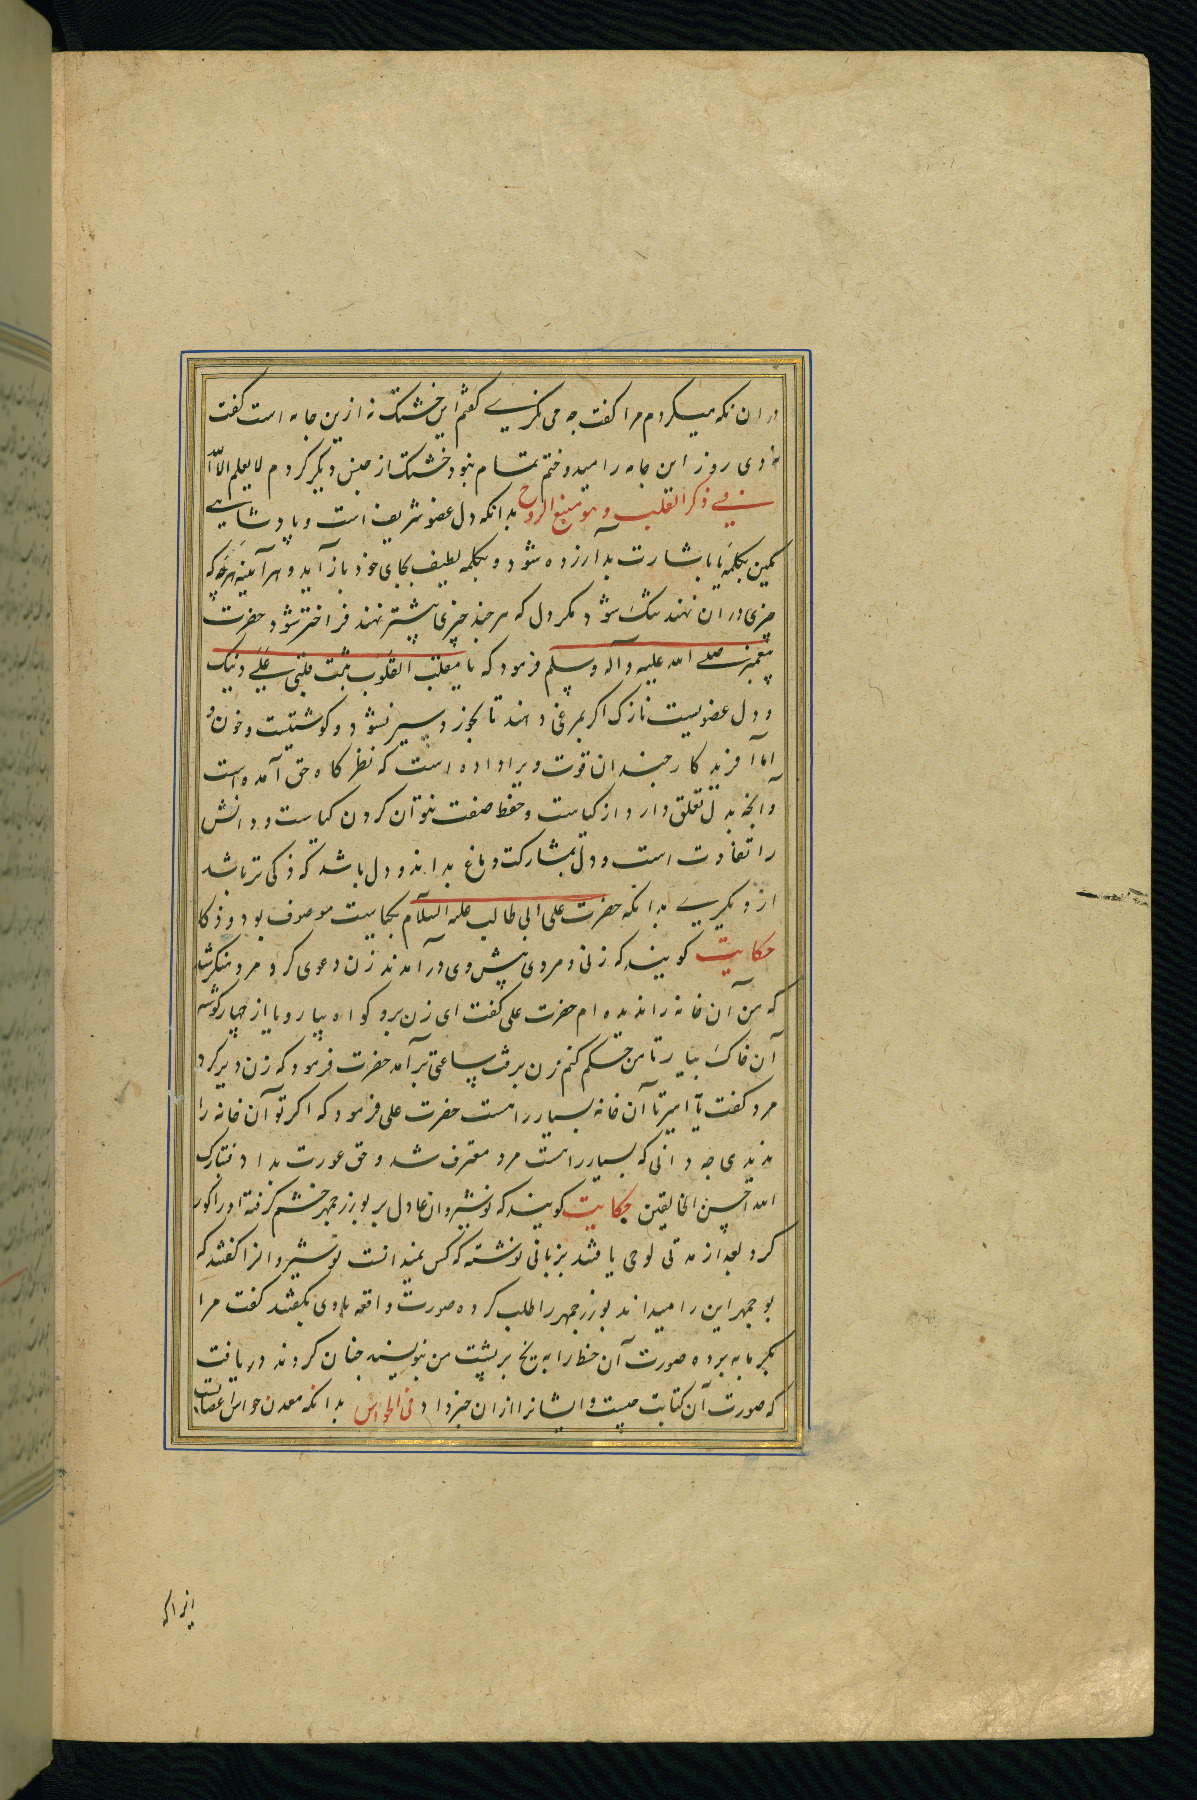 در ان نکه میکردم مرا کفت چه می نکری کفتم این خشتک نه ازین جامه است کفت
دی روز این جامه را میدوختم تمام نبود خشتک از جنس دیکر کردم لا یعلم الا الله
فی ذکر القلب و هو منبع الروح بدانکه دل عضو شریف است و پادشاهی
بکلمه یا بشارت بد آزرده شود و بکلمه لطیف بجای خود باز آید و هر آینه هر چه که
چیزی در ان نهند تنک شود مکر دل که هر چند چیزی بیشتر نهند فراختر شود حضرت
پیغمبر صلی الله علیه و آله وسلم فرمود که یا مقلب القلوب ثبت قلبی علی دینک
و دل عضویست نازک اکر بمرغی دهند تا بخورد سیر نشود و کوشتیست و خون و
اما آفریدکار چندان قوت ویرا داده است که نظرکاه حق آمده است
و آنچه بدل تعلق دارد از کیاست و حفظ صفت نتوان کردن کیاست و دانش
را تفاوت است و دل بمشارکت دماغ بداند و دل باشد که ذکی تر باشد
از دیکری بدانکه حضرت علی ابی طالب علیه السلام بکیاست موصوف بود و ذکا
حکایت کویند که زنی و مردی پیش وی درآمدند زن دعوی کرد مرد منکر شد
که من آن خانه را ندیده ام حضرت علی کفت ای زن برو کواه بیار و یا از چهار کوشه
آن خاک بیار تا من حکم کنم زن برفت ساعتی برآمد حضرت فرمود که زن دیر کرد
مرد کفت یا امیر تا آن خانه بسیار راهست حضرت علی فرمود که اکر تو آن خانه را
ندیدی چه دانی که بسیار راهست مرد معترف شد و حق عورت بداد فتبارک
الله احسن الخالقین حکایت کویند که نوشیروان عادل بر بوزرجمهر خشم کرفته او را کور
کرد بعد از مدتی لوحی یافتند بزبانی نوشته که کس نمیدانست نوشیروانرا کفتند که
بوجمهر این را میداند بوزرجمهر را طلب کرده صورت واقعه با وی بکفتند کفت مرا
بکرمابه برده صورت آن خط را به یخ بر پشت من بنویسند چنان کردند دریافت
که صورت آن کتابت چیست و ایشانرا ازان خبر داد فی الحواس بدانکه معدن حواس